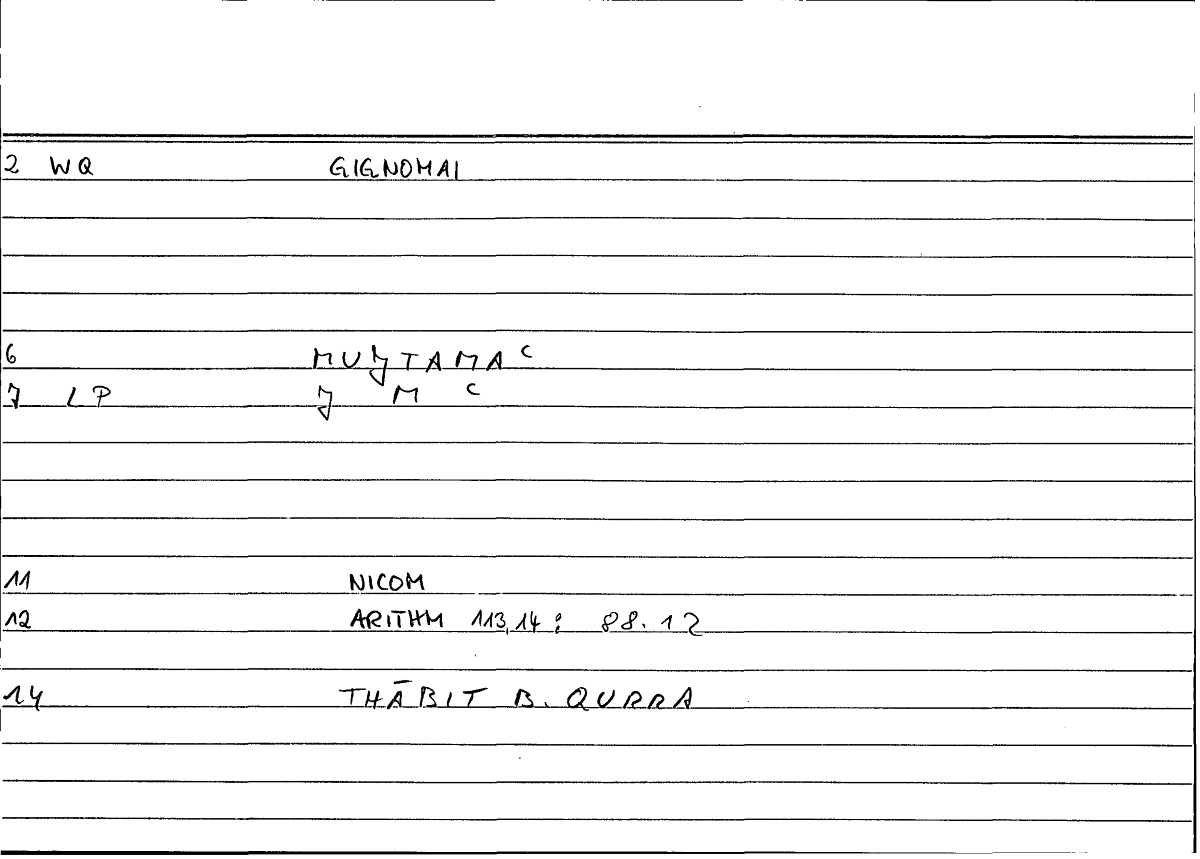 2 WQ GIGNOMAI
6 MUJTAMAᶜ
7 LP J M ᶜ
11 NICOM
12 ARITHM 113,14 : 88.12
14 THĀBIT B. QURRA